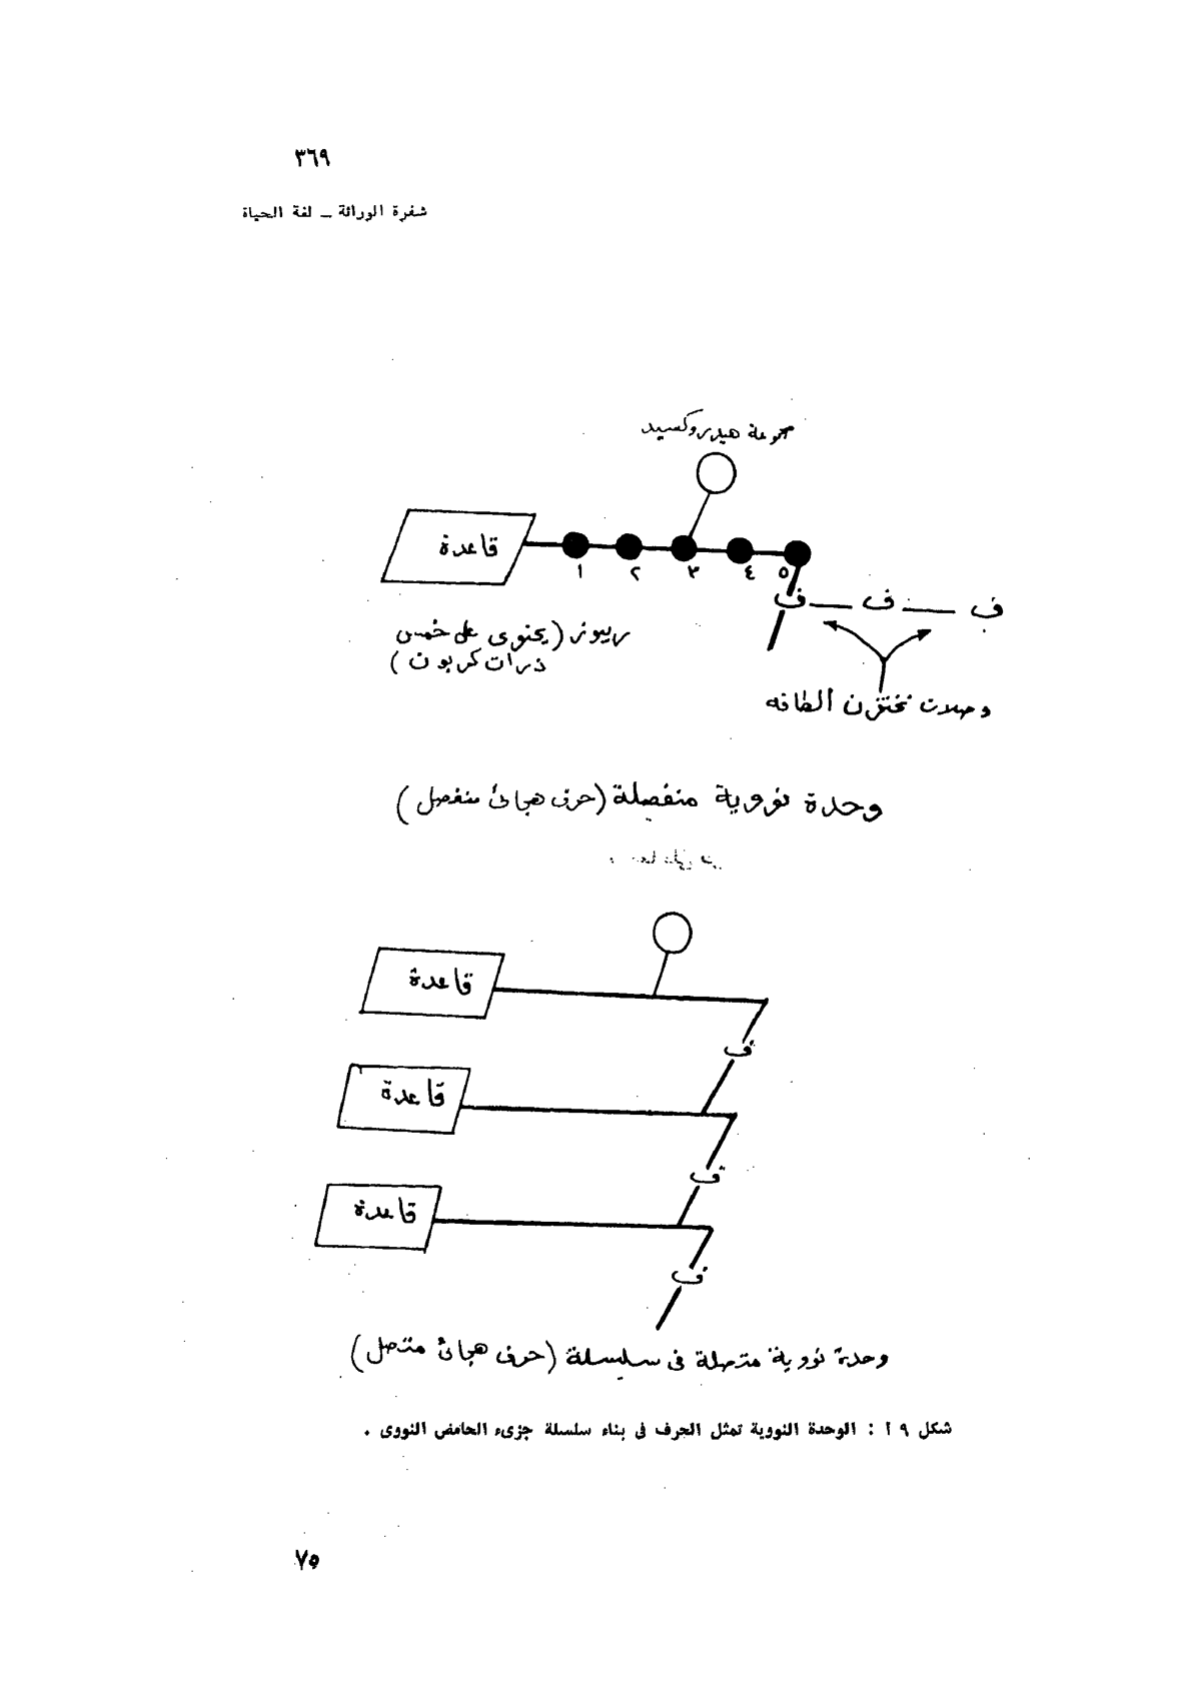 ٣٦٩
شفرة الوراثة ـ لغة الحياة
مجموعة هيدروكسيد
قاعدة
١ ٢ ٣ ٤ ٥
ف ـــ ف ـــ ف
ريبوز (يحتوى على خمس
ذرات كربون)
وصلات تختزن الطاقه
وحدة نووية منفصلة (حرف هجائى منفصل)
قاعدة
ف
قاعدة
ف
قاعدة
ف
وحدة نووية متصلة فى سلسلة (حرف هجائى متصل)
شكل ٩ أ : الوحدة النووية تمثل الحرف فى بناء سلسلة جزىء الحامض النووى .
٧٥